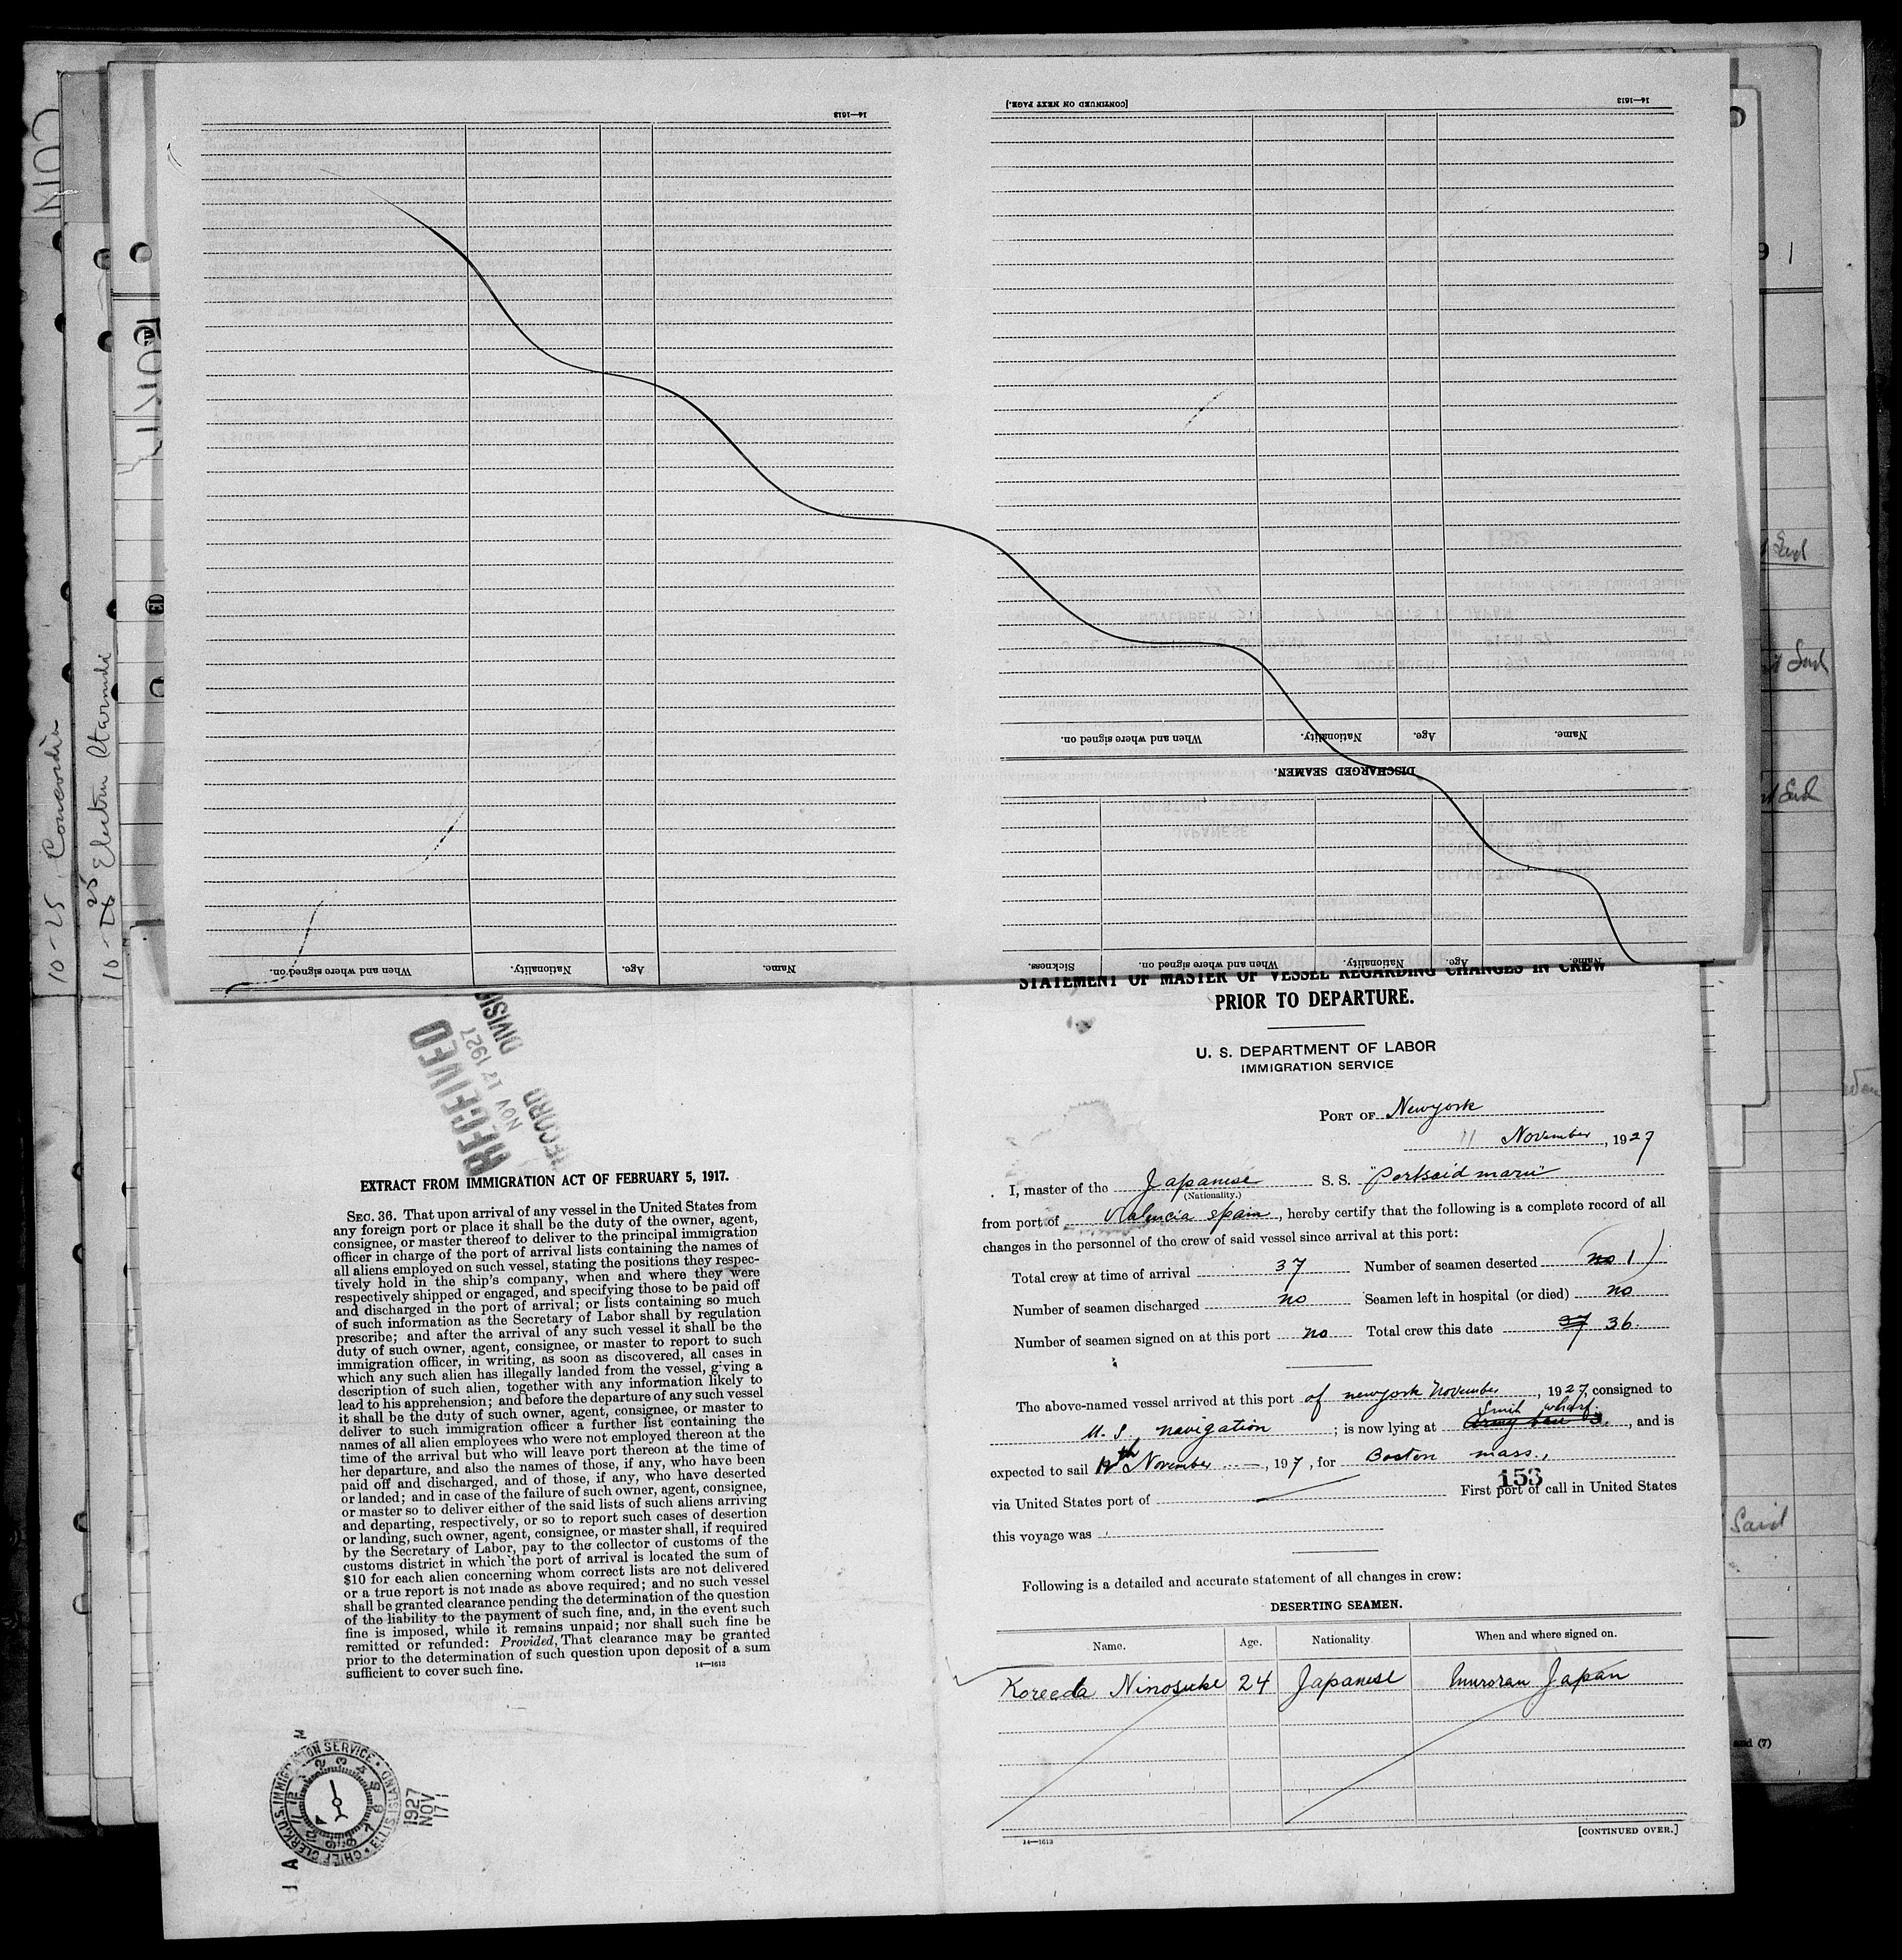 [CONTINUED ON NEXT PAGE.]
14—1613
14—1613
When and where signed on.
Nationality.
Age.
Name.
DISCHARGED SEAMEN.
Sickness.
When and where signed on.
Nationality.
Age.
Name.
When and where signed on.
Nationality.
Age.
Name.
10-25 Concordia
25
RECEIVED
NOV 17 1927
RECORD DIVISIO
EXTRACT FROM IMMIGRATION ACT OF FEBRUARY 5, 1917.
SEC. 36. That upon arrival of any vessel in the United States from
any foreign port or place it shall be the duty of the owner, agent,
consignee, or master thereof to deliver to the principal immigration
officer in charge of the port of arrival lists containing the names of
all aliens employed on such vessel, stating the positions they respec-
tively hold in the ship's company, when and where they were
respectively shipped or engaged, and specifying those to be paid off
and discharged in the port of arrival; or lists containing so much
of such information as the Secretary of Labor shall by regulation
prescribe; and after the arrival of any such vessel it shall be the
duty of such owner, agent, consignee, or master to report to such
immigration officer, in writing, as soon as discovered, all cases in
which any such alien has illegally landed from the vessel, giving a
description of such alien, together with any information likely to
lead to his apprehension; and before the departure of any such vessel
it shall be the duty of such owner, agent, consignee, or master to
deliver to such immigration officer a further list containing the
names of all alien employees who were not employed thereon at the
time of the arrival but who will leave port thereon at the time of
her departure, and also the names of those, if any, who have been
paid off and discharged, and of those, if any, who have deserted
or landed; and in case of the failure of such owner, agent, consignee,
or master so to deliver either of the said lists of such aliens arriving
and departing, respectively, or so to report such cases of desertion
or landing, such owner, agent, consignee, or master shall, if required
by the Secretary of Labor, pay to the collector of customs of the
customs district in which the port of arrival is located the sum of
$10 for each alien concerning whom correct lists are not delivered
or a true report is not made as above required; and no such vessel
shall be granted clearance pending the determination of the question
of the liability to the payment of such fine, and, in the event such
fine is imposed, while it remains unpaid; nor shall such fine be
remitted or refunded: Provided, That clearance may be granted
prior to the determination of such question upon deposit of a sum
sufficient to cover such fine.
14—1613
CHIEF CLERK, U.S. IMMIGRATION SERVICE · ELLIS ISLAND
1927 NOV 17
STATEMENT OF MASTER OF VESSEL REGARDING CHANGES IN CREW
PRIOR TO DEPARTURE.
U. S. DEPARTMENT OF LABOR
IMMIGRATION SERVICE
PORT OF Newyork
11 November, 1927
I, master of the Japanese S. S. "Portsaid maru"
(Nationality.)
from port of Valencia spain, hereby certify that the following is a complete record of all
changes in the personnel of the crew of said vessel since arrival at this port:
Total crew at time of arrival 37 Number of seamen deserted no 1
Number of seamen discharged no Seamen left in hospital (or died) no
Number of seamen signed on at this port no Total crew this date 37 36.
The above-named vessel arrived at this port of newyork November, 1927, consigned to
U. S. navigation; is now lying at wharf., and is
expected to sail 12th November, 197, for Boston mass.,
153
via United States port of First port of call in United States
this voyage was
Following is a detailed and accurate statement of all changes in crew:
DESERTING SEAMEN.
Name. Age. Nationality. When and where signed on.
Koreeda Ninosuke 24 Japanese Muroran Japan
14—1613
[CONTINUED OVER.]
and (7)